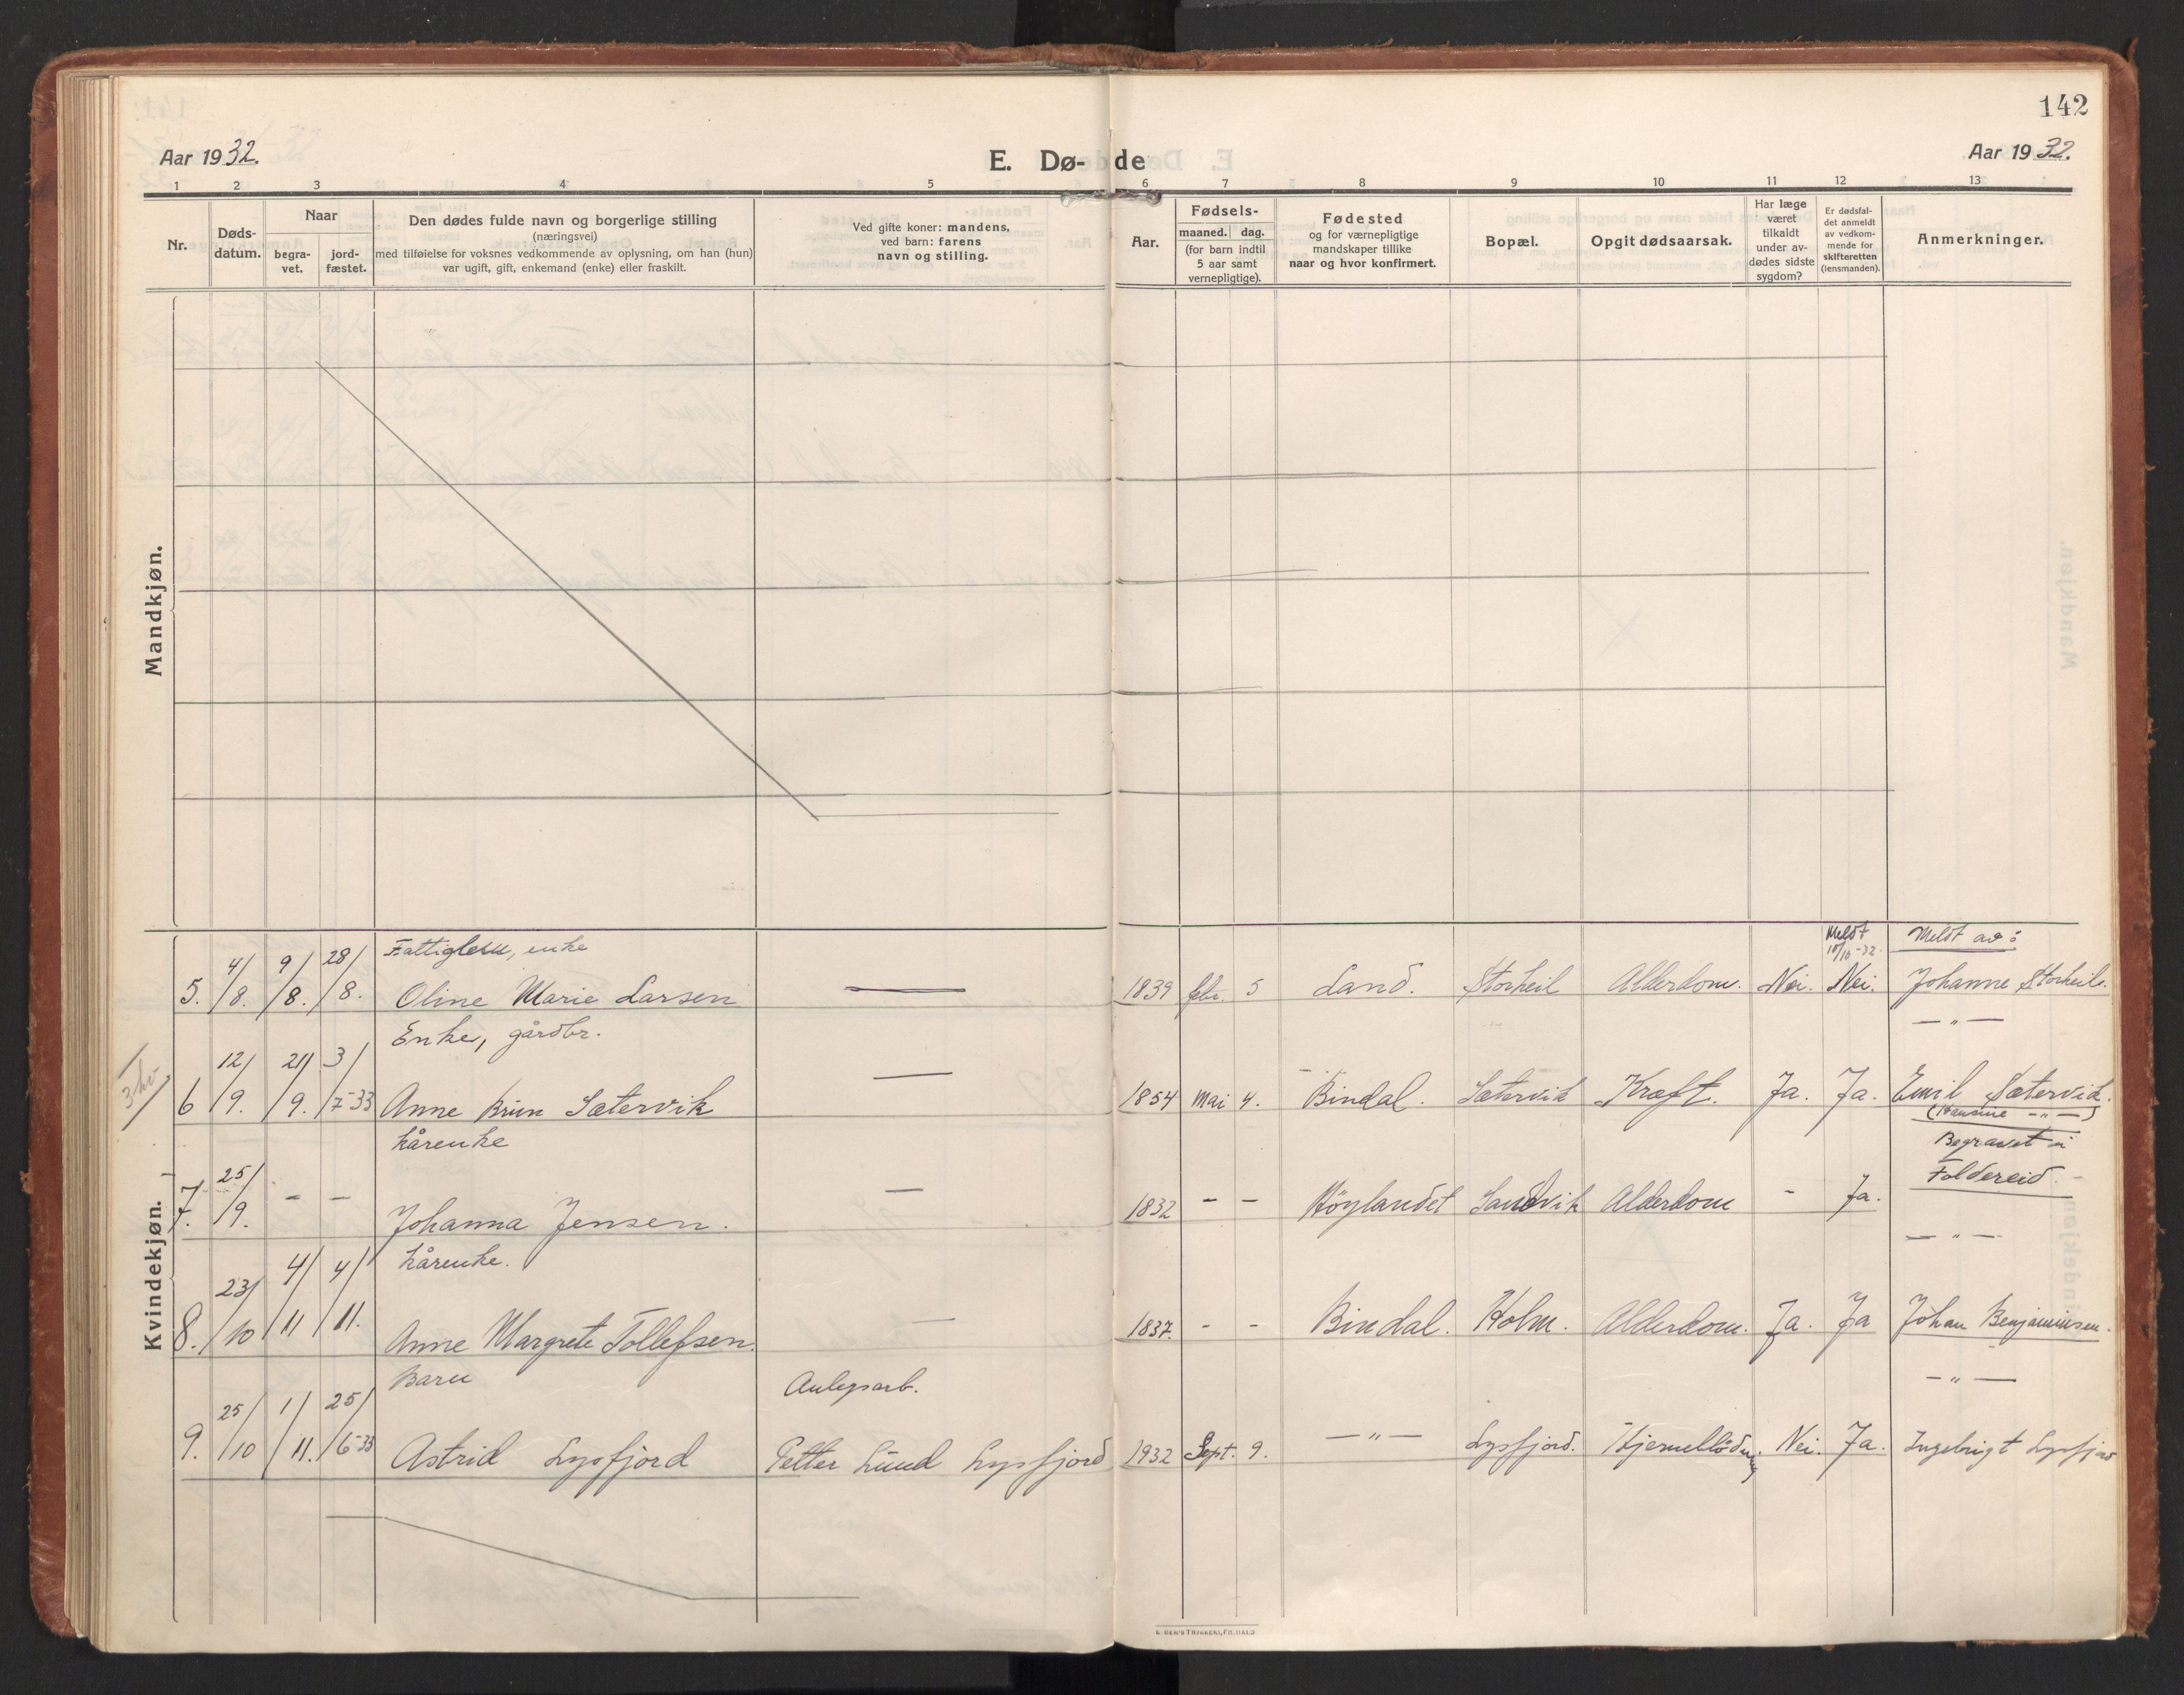 142
Aar 1932.
E. Dø- de
Aar 1932.
1 2 3 4 5 6 7 8 9 10 11 12 13
Nr.
Døds-
datum.
Naar
begra-
vet.
jord-
fæstet.
Den dødes fulde navn og borgerlige stilling
(næringsvei)
med tilføielse for voksnes vedkommende av oplysning, om han (hun)
var ugift, gift, enkemand (enke) eller fraskilt.
Ved gifte koner: mandens,
ved barn: farens
navn og stilling.
Aar.
Fødsels-
maaned. dag.
(for barn indtil
5 aar samt
vernepligtige).
Fødested
og for værnepligtige
mandskaper tillike
naar og hvor konfirmert.
Bopæl.
Opgit dødsaarsak.
Har læge
været
tilkaldt
under av-
dødes sidste
sygdom?
Er dødsfal-
det anmeldt
av vedkom-
mende for
skifteretten
(lensmanden).
Anmerkninger.
Mandkjøn.
Kvindekjøn.
Fattiglem, enke
Meldt
10/10-32.
Meldt av:
5. 4/8. 9/8. 28/8. Oline Marie Larsen — 1839 febr. 5 Land. Storheil Alderdom. Nei. Nei. Johanne Storheil.
Enke, gårdbr.
— " —
6 12/9. 21/9. 3/7-33 Anne Brun Sætervik — 1854 Mai 4. Bindal. Sætervik Kræft. Ja. Ja. Emil Sætervik.
(Hansine — " —)
kårenke
Begravet i
Foldereid.
7. 25/9. - - Johanna Jensen. — 1832 - - Höylandet Sandvik Alderdom - Ja.
kårenke.
— " —
8. 23/10 4/11 4/11. Anne Margrete Tollefsen. — 1837. - - Bindal. Holm. Alderdom. Ja. Ja Johan Benjaminsen.
Barn
Anlegsarb.
— " —
9. 25/10 1/11. 25/6-33 Astrid Lysfjord Petter Lund Lysfjord 1932 Sept. 9. — " — Lysfjord. Hjerneblødning Nei. Ja. Ingebrigt Lysfjord